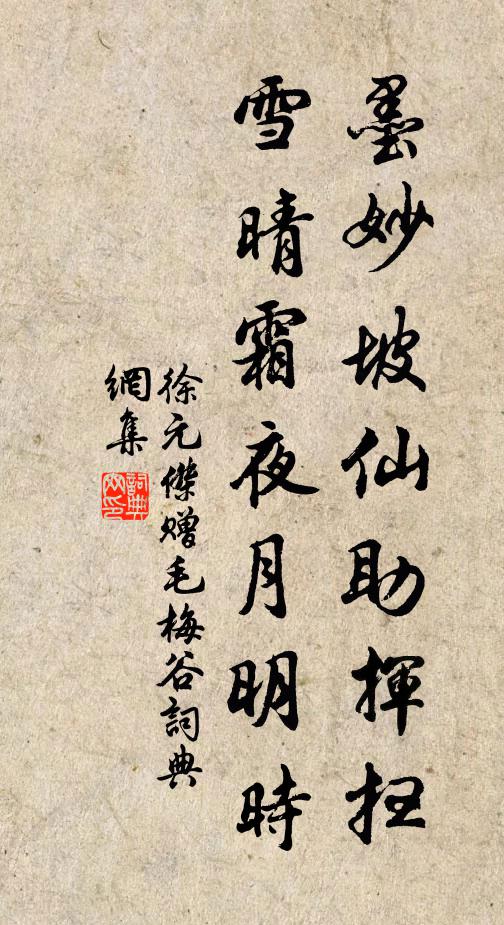 墨妙坡仙助揮扫
雪晴霜夜月明時
徐元傑贈毛梅谷詞典
網集
詞典
网印